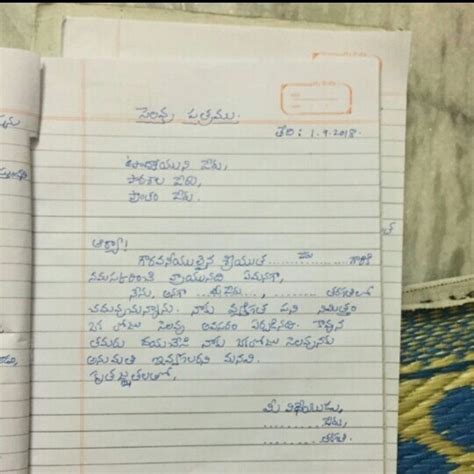 సెలవు పత్రము.
తేది: 1.9.2018.
ఉపాధ్యాయుని పేరు,
పాఠశాల పేరు,
ప్రాంతం పేరు.
ఆర్యా!
గౌరవనీయులైన శ్రీయుత ....పేరు........ గారికి
నమస్కరించి వ్రాయునది ఏమనగా,
నేను, అనగా ...మీ పేరు..., .......... తరగతిలో
చదువుచున్నాను. నాకు వ్యక్తిగత పని నిమిత్తం
ఒక రోజు సెలవు అవసరం ఏర్పడినది. కావున
తమరు దయచేసి నాకు ఒకరోజు సెలవునకు
అనుమతి ఇవ్వగలరని మనవి.
కృతజ్ఞతలతో,
మీ విధేయుడు,
............పేరు,
............తరగతి.